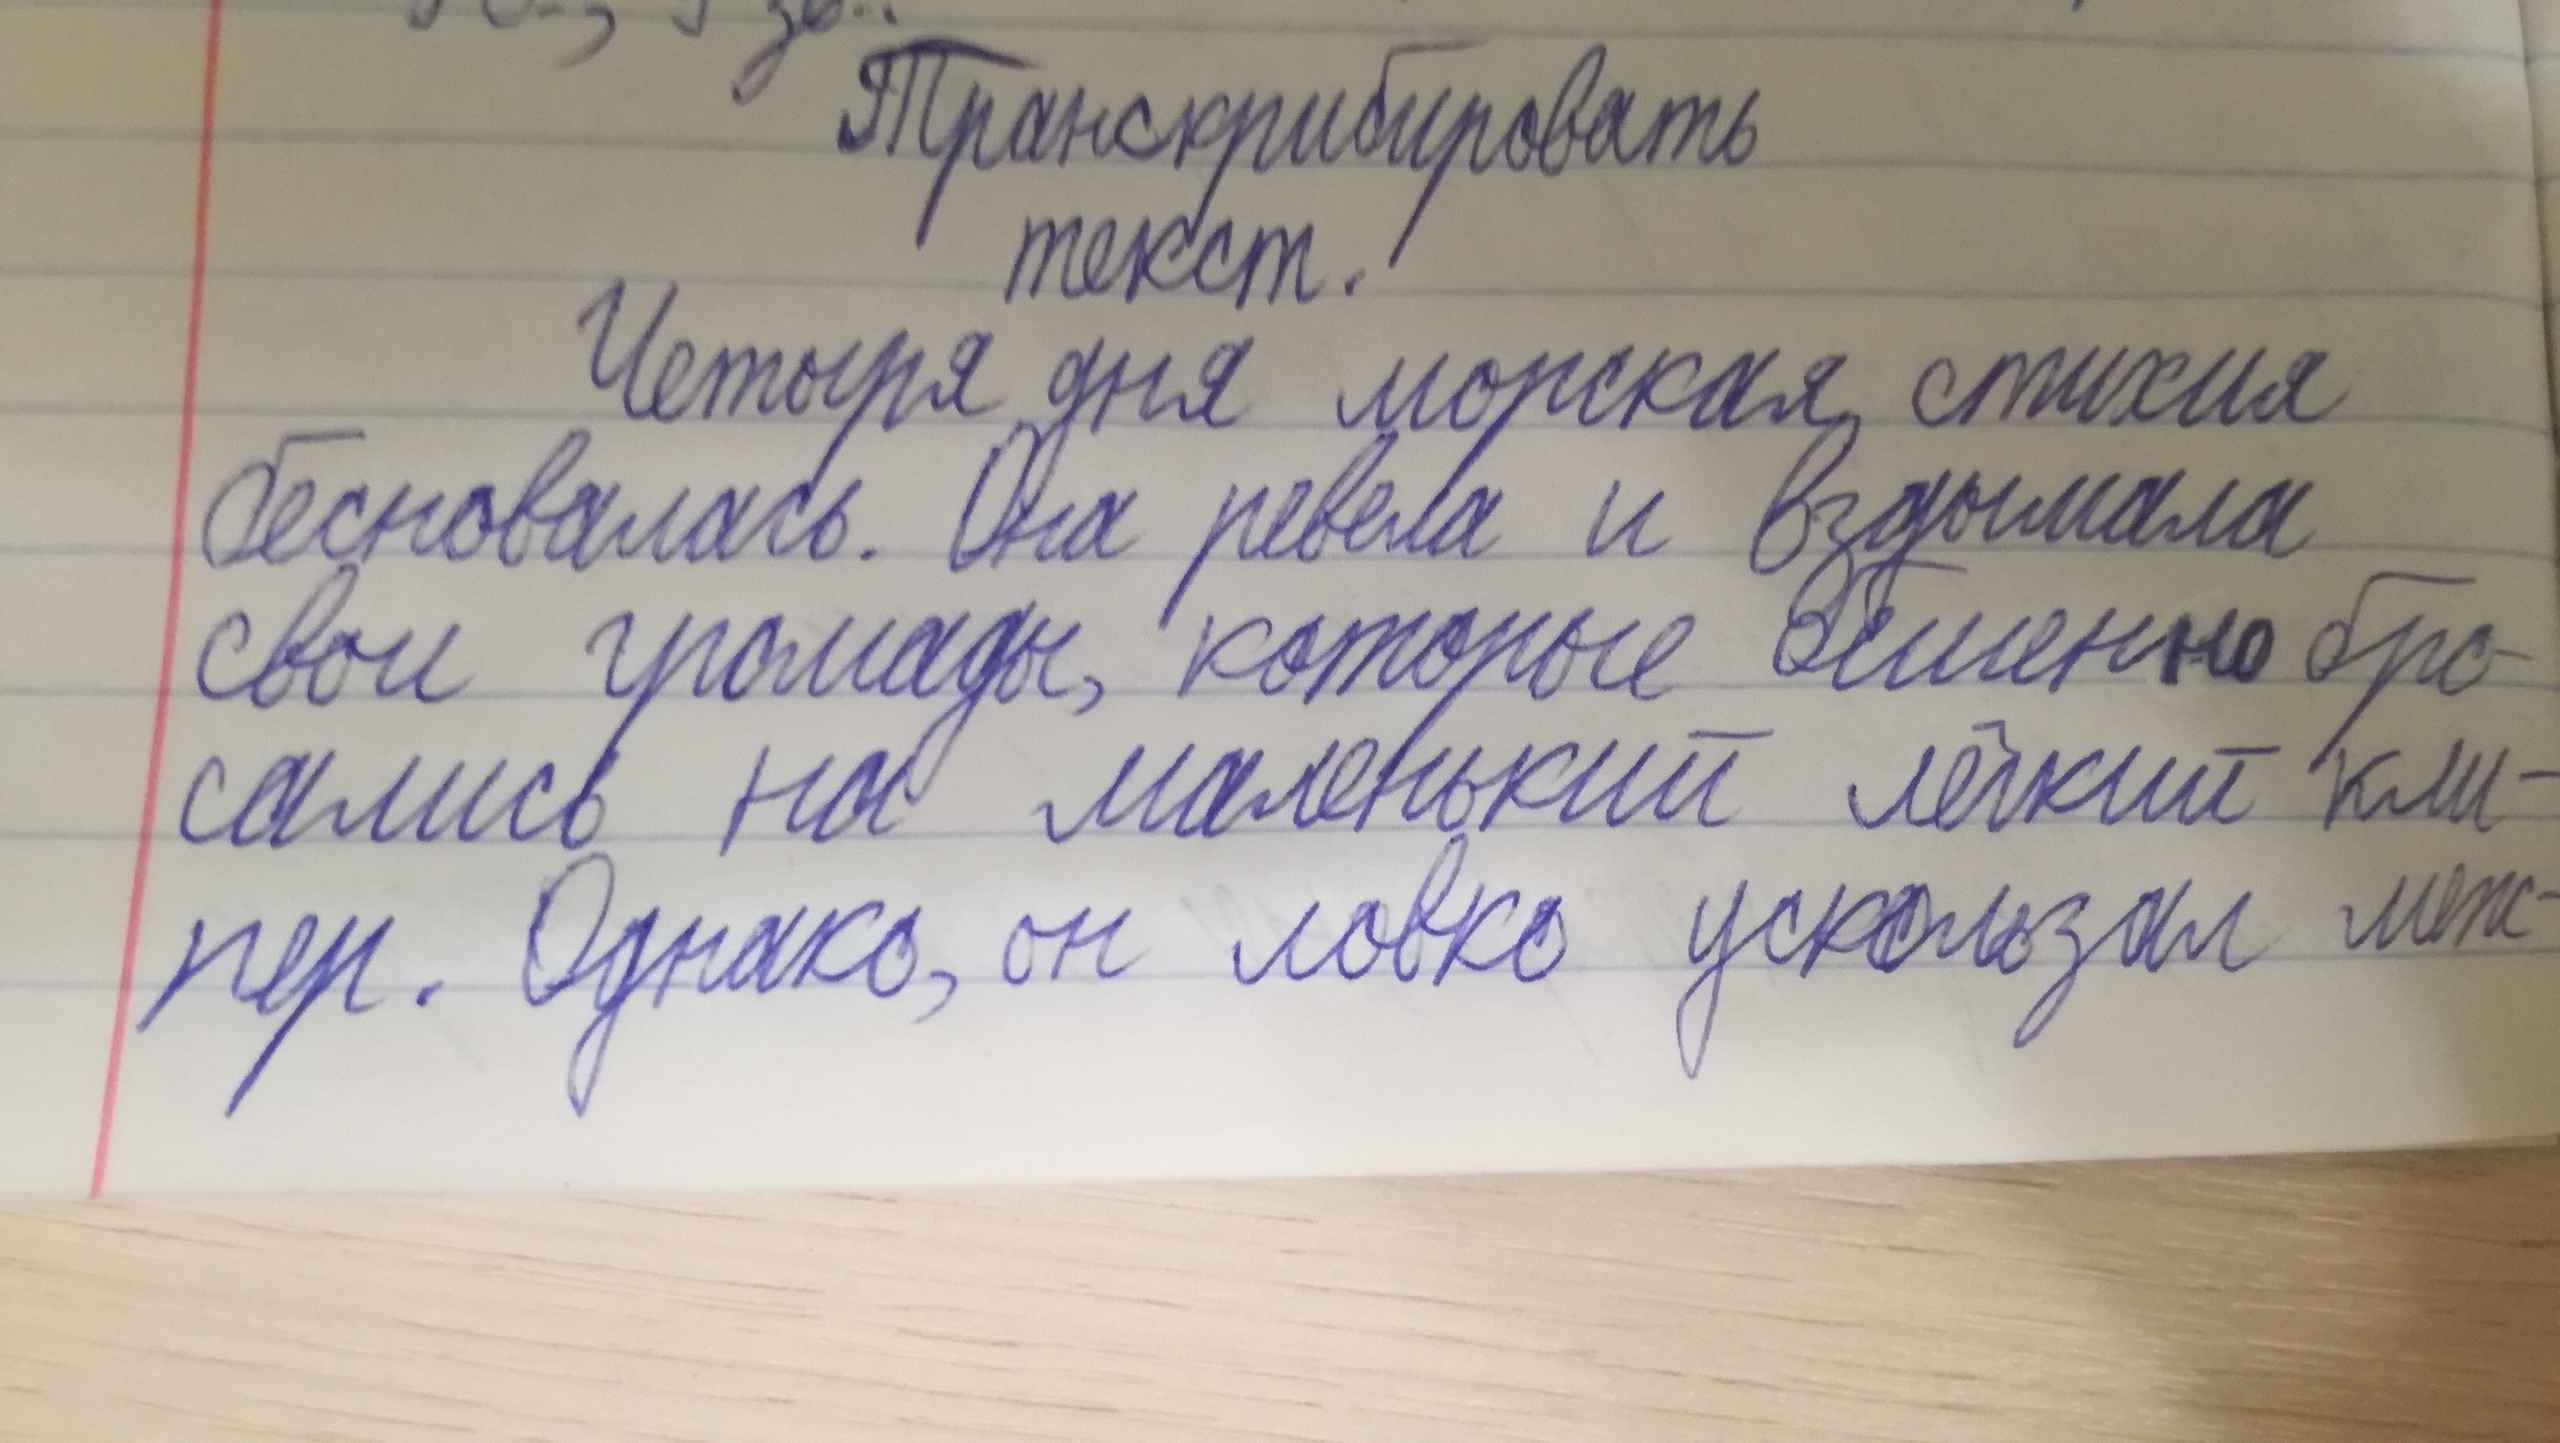 Транскрибировать
текст.
Четыря дня морская стихия
бесновалась. Она ревела и вздымала
свои громады, которые бешенно бро-
сались на маленький лёгкий кли-
пер. Однако, он ловко ускользал меж-